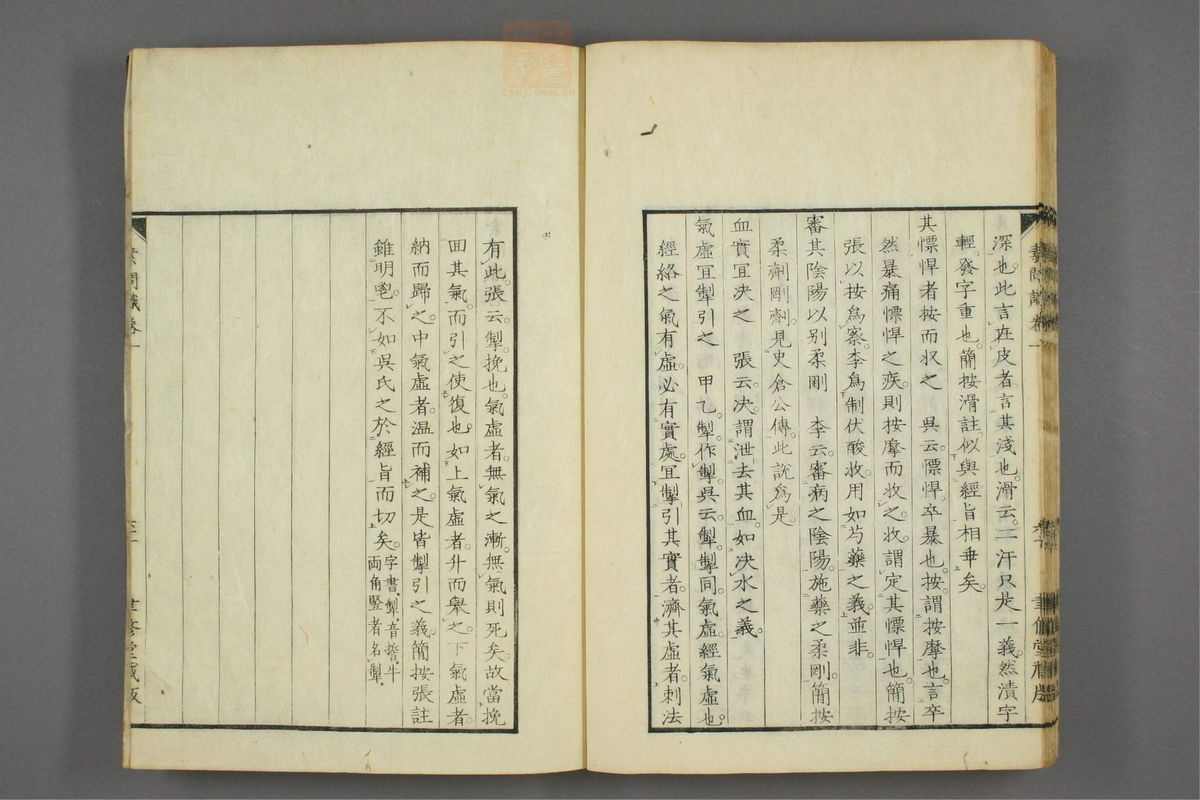 深也此言在皮者言其淺也滑云二汗只是一義然漬字
輕發字重也簡按滑註似與經旨相乖矣
其慓悍者按而収之 吳云慓悍卒暴也按謂按摩也言卒
然暴痛慓悍之疾則按摩而收之收謂定其慓悍也簡按
張以按爲察李爲制伏酸收用如芍藥之義並非
審其陰陽以别柔剛 李云審病之陰陽施藥之柔剛簡按
柔劑剛劑見史倉公傳此說爲是
血實宜決之 張云決謂泄去其血如決水之義
氣虛宜掣引之 甲乙掣作掣吳云掣掣同氣虛經氣虛也
經絡之氣有虛必有實處宜掣引其實者濟其虛者刺法
有此張云掣挽也氣虛者無氣之漸無氣則死矣故當挽
回其氣而引之使復也如上氣虛者升而舉之下氣虛者
納而歸之中氣虛者温而補之是皆掣引之義簡按張註
雖明鬯不如吳氏之於經旨而切矣字書掣音掣牛
兩角竪者名掣
素問識卷一
聿修堂藏版
素問識卷一
聿修堂藏版